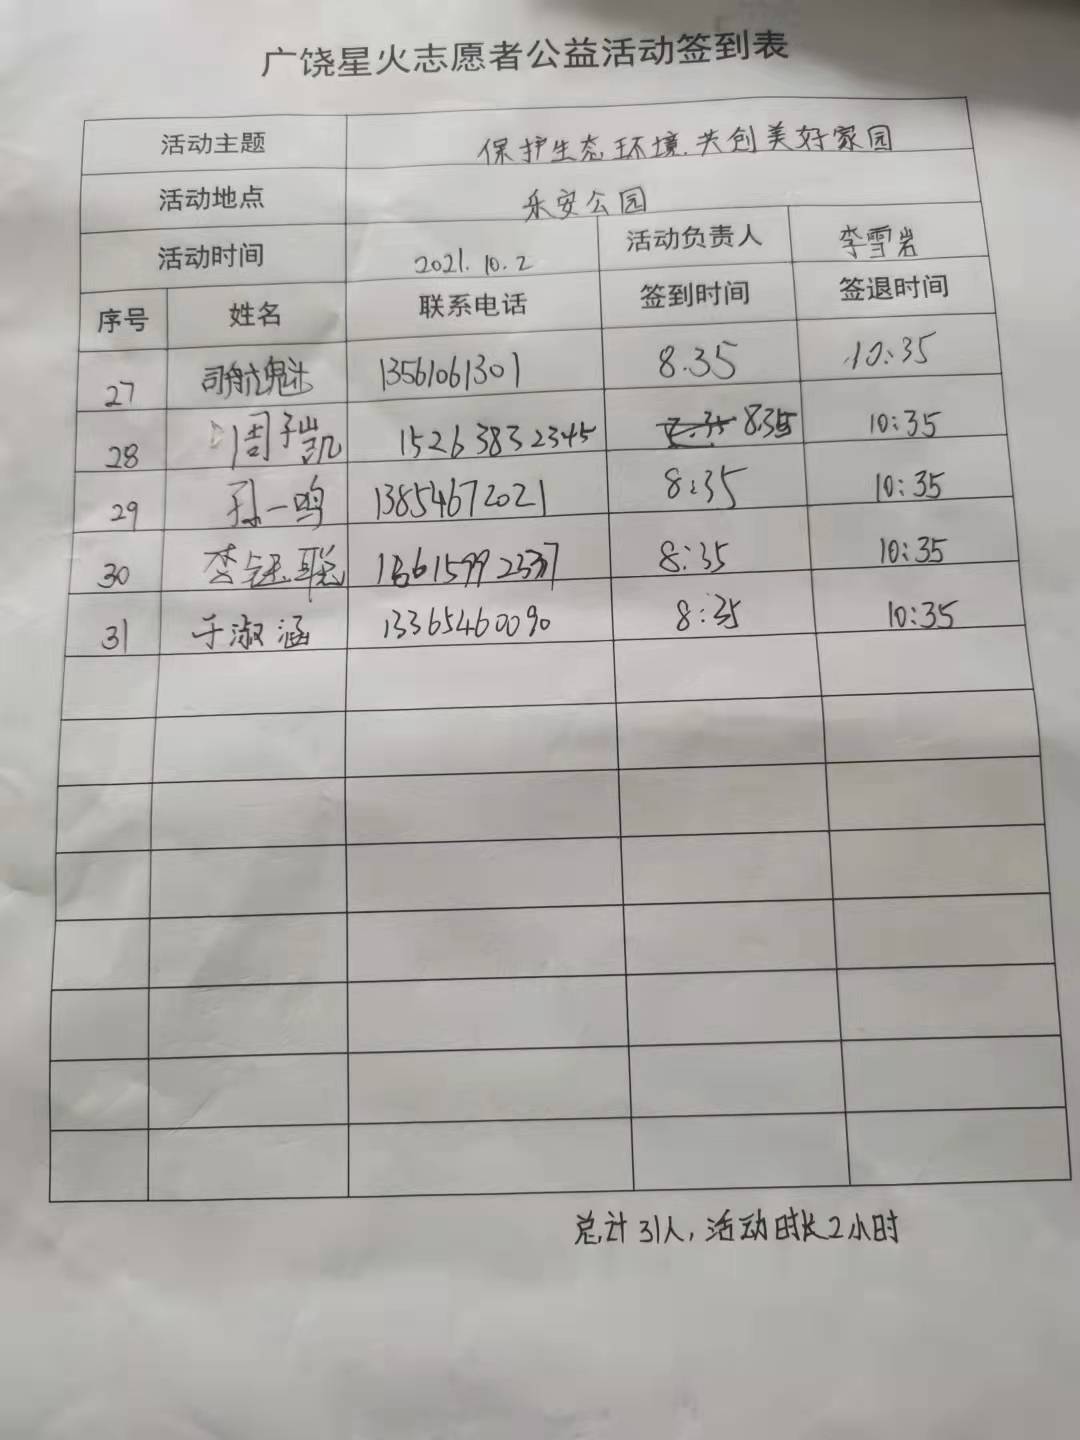 广饶星火志愿者公益活动签到表
活动主题 保护生态环境.共创美好家园
活动地点 乐安公园
活动时间 2021.10.2 活动负责人 李雪岩
序号 姓名 联系电话 签到时间 签退时间
27 司航魁 13561061301 8.35 10:35
28 周子凯 15263832345 8:35 10:35
29 孙一鸣 13854672021 8:35 10:35
30 李钰聪 8:35 10:35
31 于淑涵 13365460090 8:35 10:35
总计31人,活动时长2小时